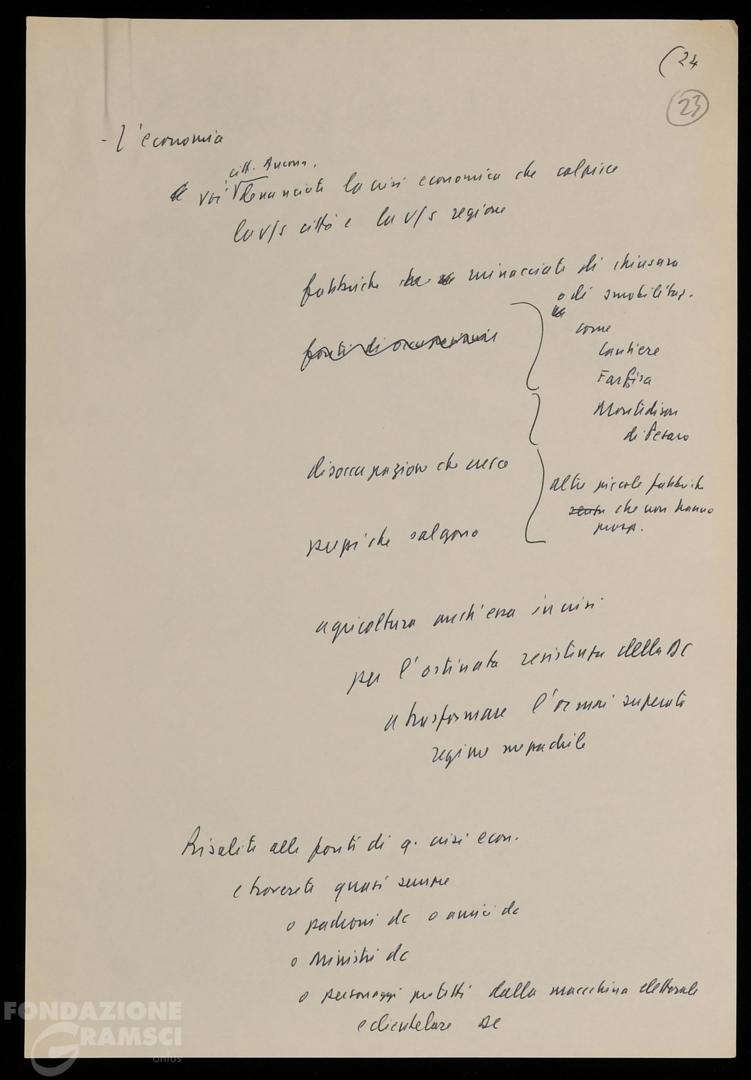 (24
23
- L'economia
citt. Ancona.
Voi denunciate la crisi economica che colpisce
la v/s città e la v/s regione
fabbriche minacciate di chiusura
o di smobilitaz.
come
Cantiere
Farfisa
Montedison
di Pesaro
fonti di occupazione
disoccupazione che cresce
altre piccole fabbriche
che non hanno
prezzi che salgono
agricoltura anch'essa in crisi
per l'ostinata resistenza della DC
a trasformare l'ormai superato
regime mezzadrile
Risalite alle fonti di q. crisi econ.
e troverete quasi sempre
o padroni dc o amici dc
o Ministri dc
o personaggi protetti dalla macchina elettorale
e clientelare DC
FONDAZIONE
GRAMSCI
onlus